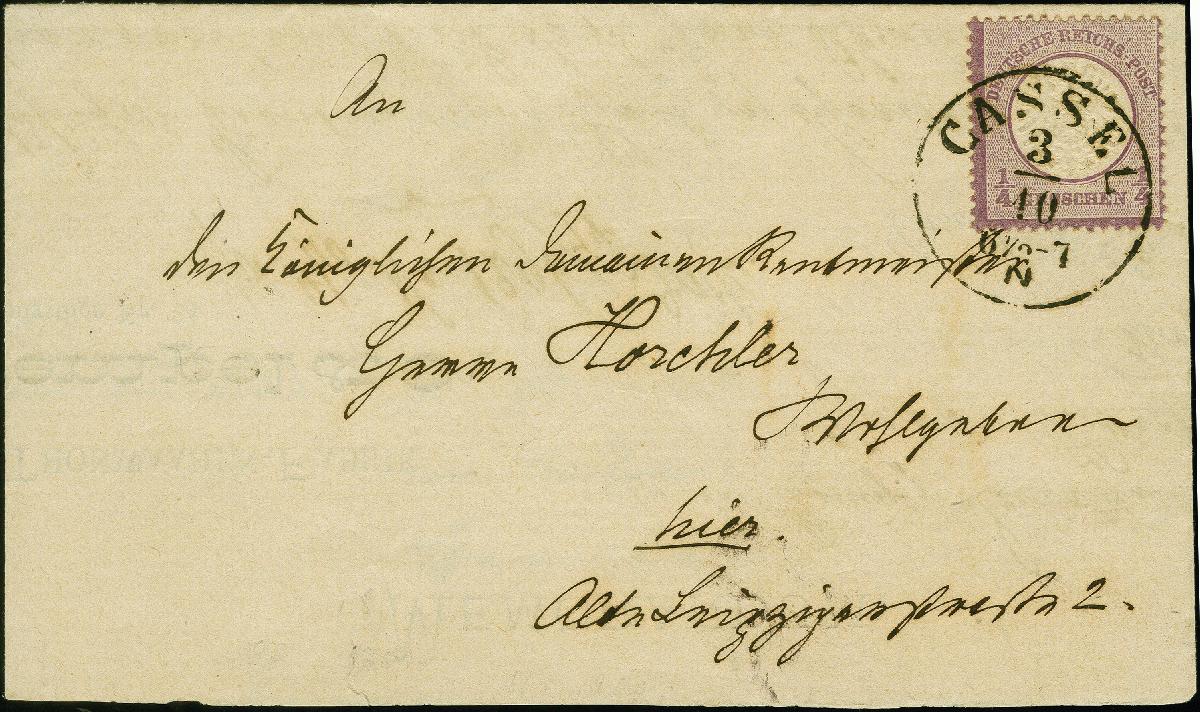 DEUTSCHE REICHS-POST
1/4 GROSCHEN 1/4
CASSEL
3
10
6½-7
N
An
den Königlichen Domainen Rentmeister
Herrn Horchler
Wohlgeboren
hier.
Alte Leipzigerstraße 2.